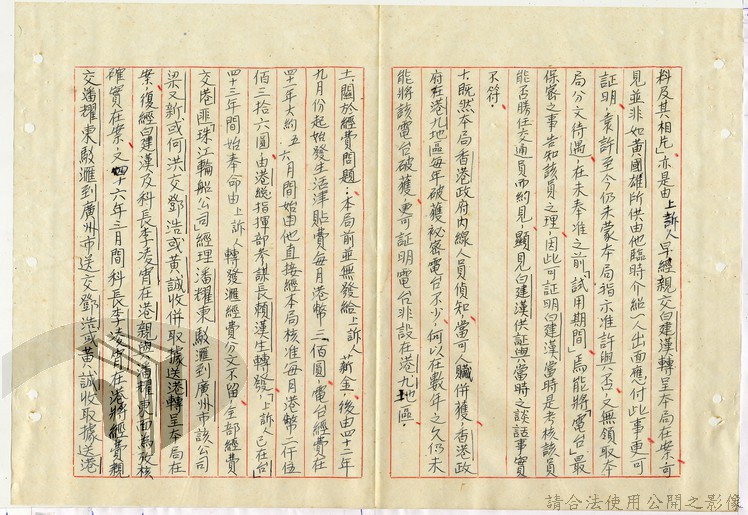 料及其相片」亦是由上訴人早經親交白建漢轉呈本局在案可
見並非如黃國雄所供由他臨時介紹一人出面應付此事更可
証明,袁許至今仍未蒙本局指示准許與否,又無領取本
局分文待遇,在未奉准之前「試用期間」焉能將「電台」最
保密之事告知該員之理,因此可証明白建漢當時是考核該員
能否勝任交通員而約見,顯見白建漢供証與當時之談話事實
不符.
十.既然本局香港政府內線人員偵知,當可人臟併獲,香港政
府在港九地區每年破獲秘密電台不少,何以在數年之久仍未
能將該電台破獲,更可証明電台非設在港九地區.
土.關於經費問題:本局前並無發給上訴人薪金,後由四十二年
九月份起始發生活津貼費每月港幣三佰圓,電台經費在
四十一年大約五六月間始由他直接經本局核准每月港幣二仟伍
佰三拾六圓,由港總指揮部參謀長賴漢生轉發,「上訴人已在台」
四十三年間始奉命由上訴人轉發滙經費分文不留,全部經費
交港匪「珠江輪船公司」經理潘耀東駁滙到廣州市該公司
梁又新或何洪交鄧浩或黃誠收併取據送港轉呈本局在
案,復經白建漢及科長李凌霄在港親與潘耀東面為攷核
確實在案,又四十六年三月間科長李凌霄在港將經費親
交潘耀東駁滙到廣州市送交鄧浩或黃誠收取據送港
請合法使用公開之影像